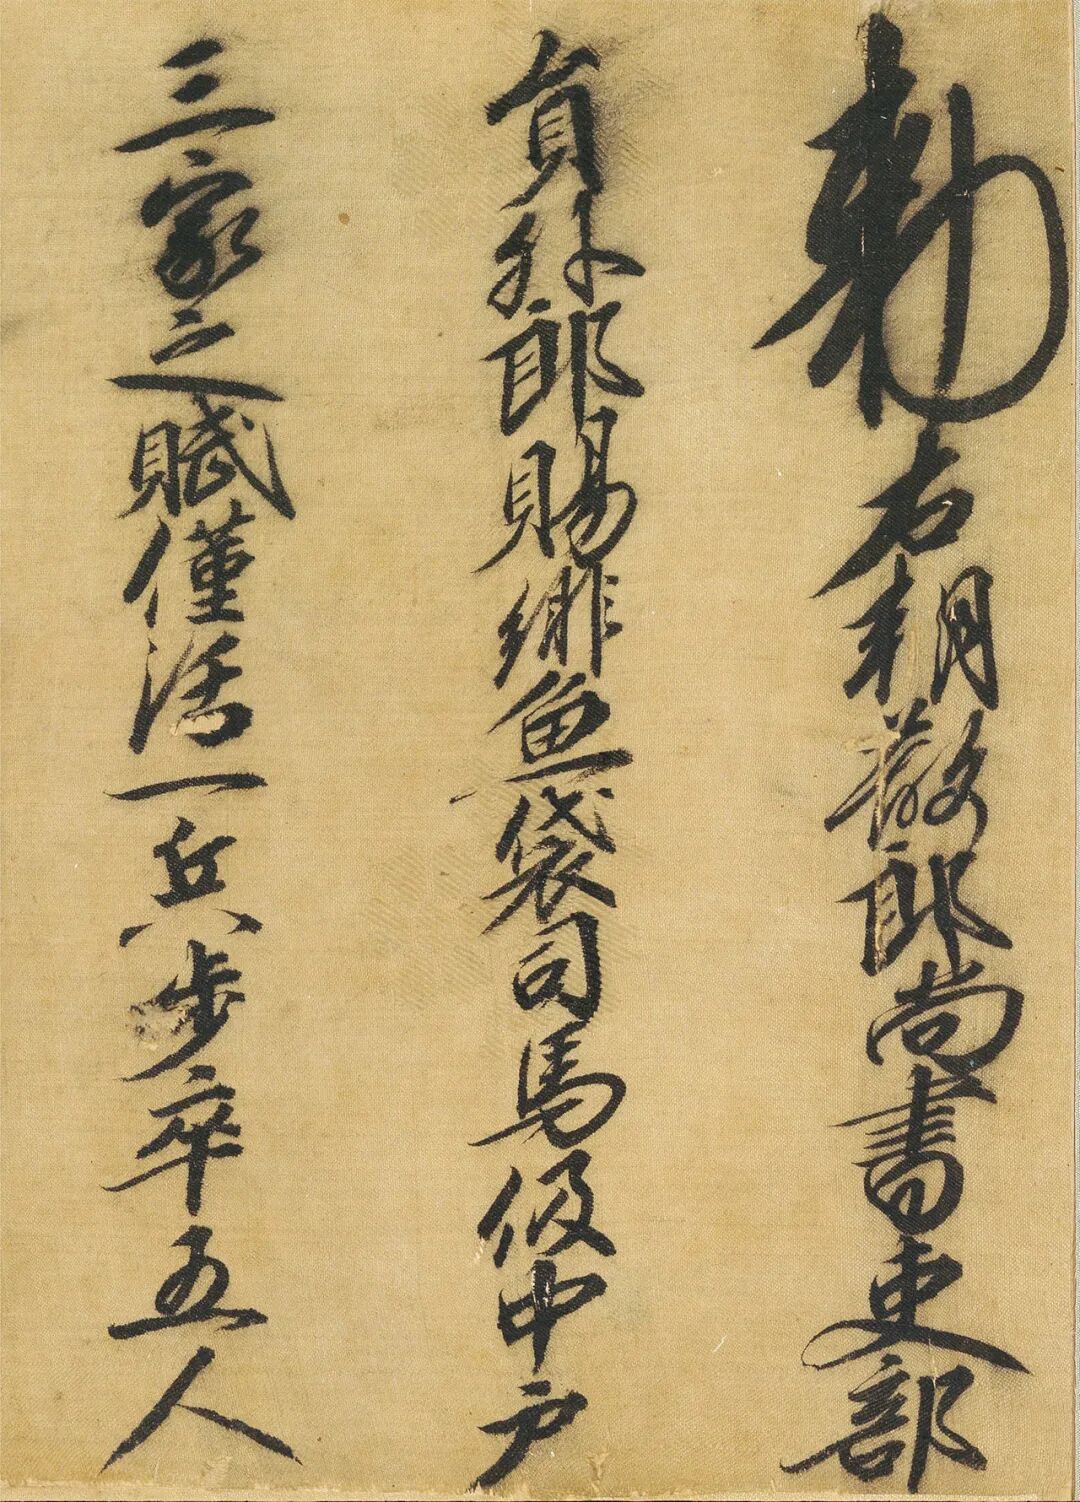 勅右朝散郎尚書吏部
員外郎賜緋魚袋司馬伋中戶
三家之賦僅活一兵步卒五人